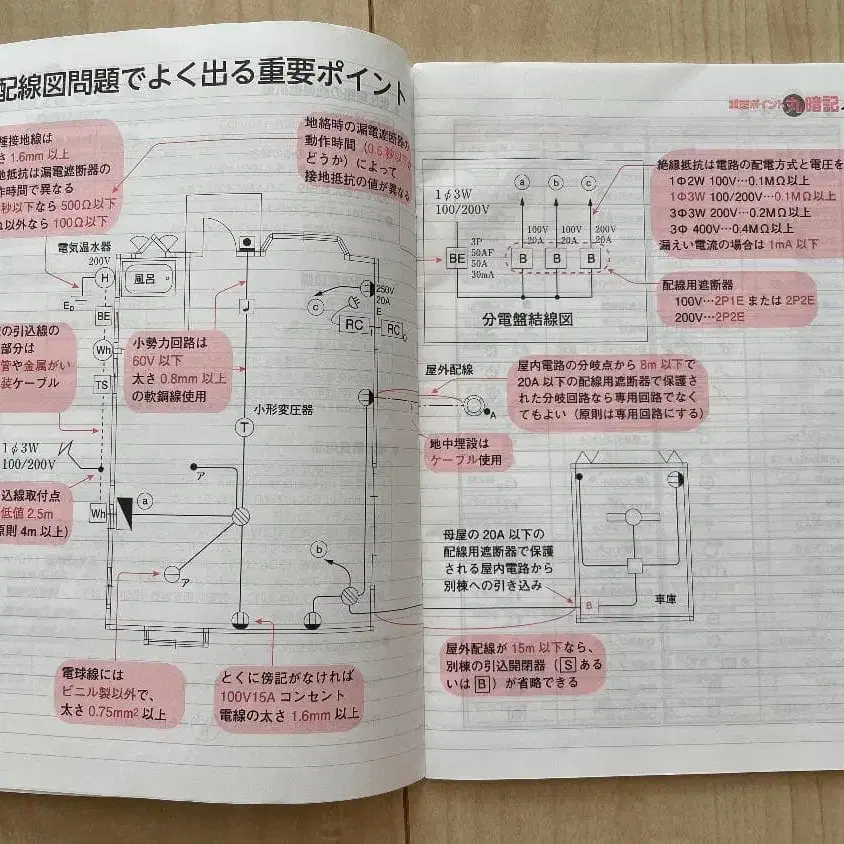 配線図問題でよく出る重要ポイント
種接地線は
さ 1.6mm 以上
地抵抗は漏電遮断器の
作時間で異なる
秒以下なら 500Ω以下
以外なら 100Ω以下
地絡時の漏電遮断器の
動作時間（0.5 秒以
どうか）によって
接地抵抗の値が異なる
電気温水器
200V
H
E_D
BE
Wh
TS
風呂
の引込線の
部分は
管や金属がい
装ケーブル
小勢力回路は
60V 以下
太さ 0.8mm 以上
の軟銅線使用
J
250V
20A
E
c
RC
RC
小形変圧器
T
1φ3W
100/200V
ア
a
込線取付点
低値 2.5m
原則 4m 以上）
Wh
b
ア
電球線には
ビニル製以外で、
太さ 0.75mm² 以上
とくに傍記がなければ
100V15A コンセント
電線の太さ 1.6mm 以上
重要ポイント 丸暗記
1φ3W
100/200V
a
b
c
BE
3P
50AF
50A
30mA
100V
20A
100V
20A
200V
20A
B
B
B
分電盤結線図
絶縁抵抗は電路の配電方式と電圧を
1Φ2W 100V…0.1MΩ以上
1Φ3W 100/200V…0.1MΩ以上
3Φ3W 200V…0.2MΩ以上
3Φ 400V…0.4MΩ以上
漏えい電流の場合は 1mA 以下
配線用遮断器
100V…2P1E または 2P2E
200V…2P2E
屋外配線
A
屋内電路の分岐点から 8m 以下で
20A 以下の配線用遮断器で保護さ
れた分岐回路なら専用回路でなく
てもよい（原則は専用回路にする）
地中埋設は
ケーブル使用
母屋の 20A 以下の
配線用遮断器で保護
される屋内電路から
別棟への引き込み
B
車庫
屋外配線が 15m 以下なら、
別棟の引込開閉器（S ある
いは B）が省略できる